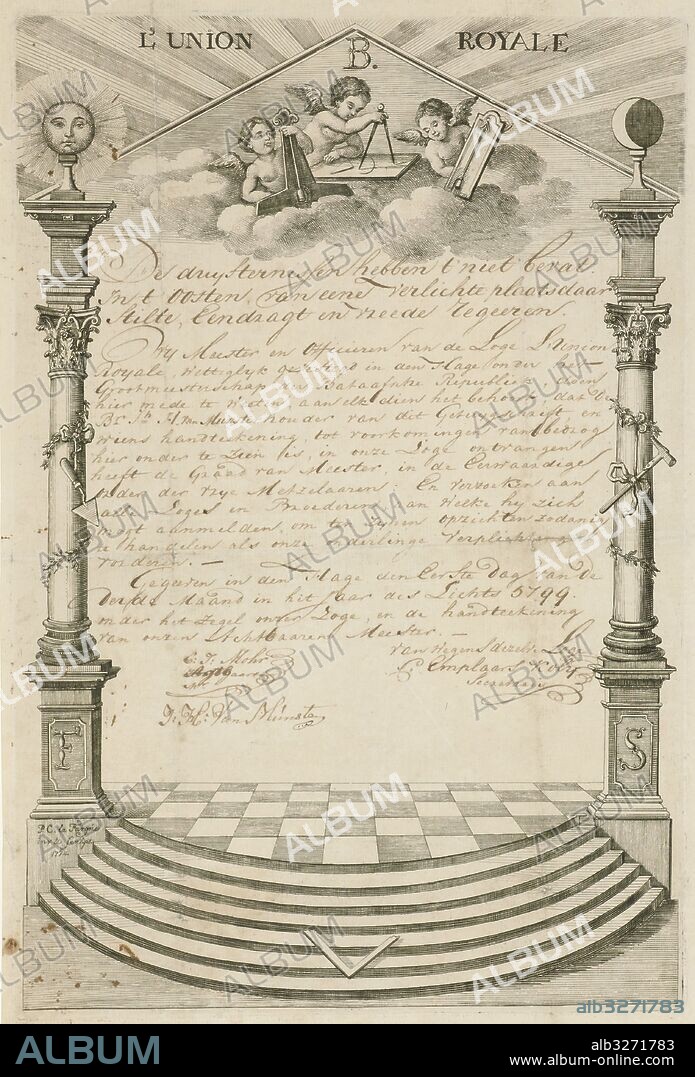 L'UNION B. ROYALE
De duysternissen hebben 't niet bevat.
In 't Oosten, van eene verlichte plaats daar
Stilte, Eendragt en vreede regeeren.
Wy Meester en Officieren van de Loge L'Union
Royale, Wettiglyk in den Hage onder het
Grootmeesterschap der Bataafsche Republiek doen
hier mede te Weten aan elk dien het behoort, dat de
Br. H. van houder van dit Getuigschrift, en
wiens handteekening, tot voorkoming van bedrog
hier onder te Zien is, in onze Loge ontvangen
heeft de Graad van Meester, in de Eerwaardige
orden der vrye Metzelaaren; En verzoeken aan
alle Loges en Broederen, aan Welke hy Zich
mogt aanmelden, om ten Zynen opzichten zodanig
te handelen als onze Verplichting
vorderen. —
Gegeeven in den Hage den Eerste Dag van de
Derde Maand in het Jaar des Lichts 5799.
onder het Zegel onzer Loge, en de handteekening
van onzen Achtbaaren Meester. —
van Wegens dezelve Loge
C. J. Mohr
Meester
Secretaris
J: H: Van Munster
F S
P.C. la Fargue
inv. et sculps.
ALBUM
alb3271783
ALBUM
alb3271783
www.album-online.com